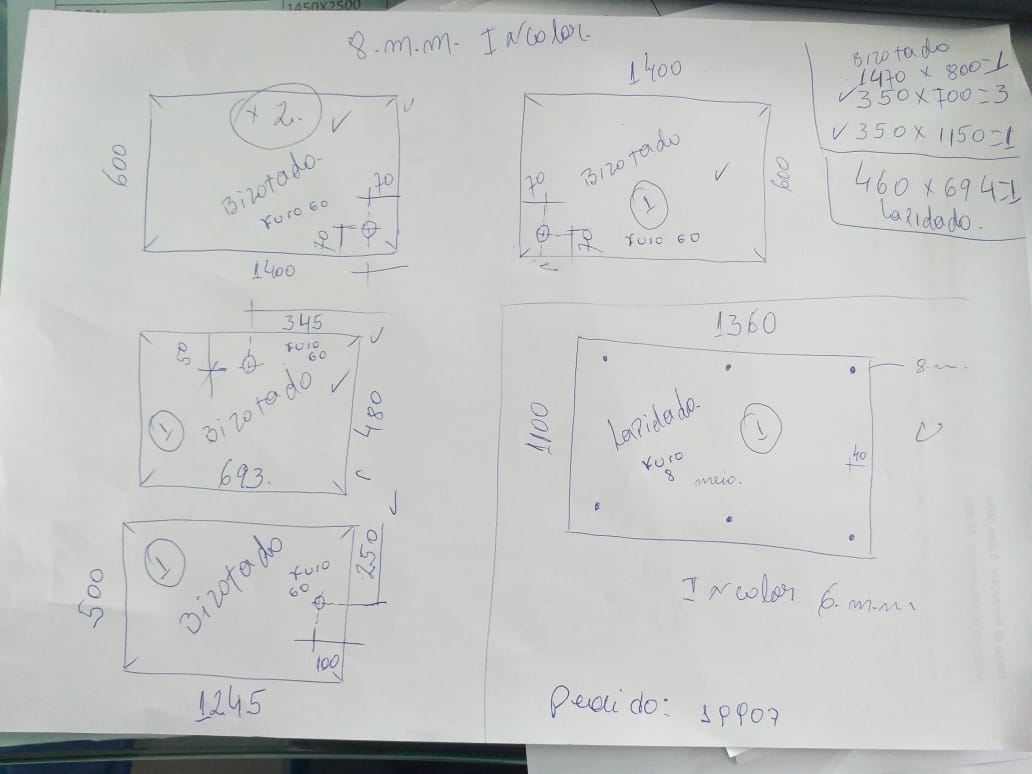 1450X2500
8.m.m. Incolor.
Bizotado
1470 x 800=1
✓350x700=3
✓350x1150=1
460x694=1
Lapidado.
x 2. ✓
Bizotado.
furo 60
600
70
70
1400
1400
Bizotado ✓
70
1
furo 60
70
600
345
50
furo
60
Bizotado ✓
1
480
693.
1
Bizotado
furo
60
250
500
100
1245
1360
8.m.
Lapidado.
1
furo
8
meio.
40
1100
Incolor 6.m.m.
Pedido: